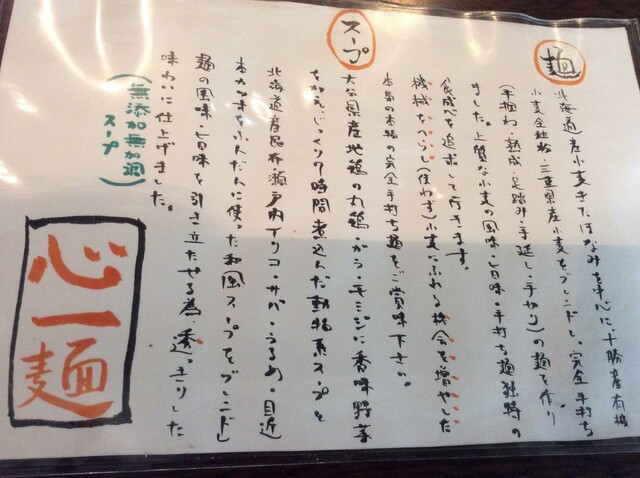 麺
北海道産小麦きたほなみを中心に、十勝産有機
小麦全粒粉・三重県産小麦をブレンドし、完全手打ち
(手捏ね・熟成・足踏み・手延し・手切り)の麺を作り
ました。上質な小麦の風味・旨味・手打ち麺独特の
食感を追求して行きます。
機械をへらし(使わず)小麦にふれる機会を増やした
本気の本物の完全手打ち麺をご賞味下さい。
スープ
大分県産地鶏の丸鶏・がら・モミジに香味野菜
をかえ、じっくり7時間煮込んだ動物系スープと
北海道産昆布、瀬戸内イリコ・サバ・うるめ・目近
本カツオをふんだんに使った和風スープをブレンド」
麺の風味・旨味を引き立たせる為、透っきりした
味わいに仕上げました。
(無添加無加調
スープ)
心一麺